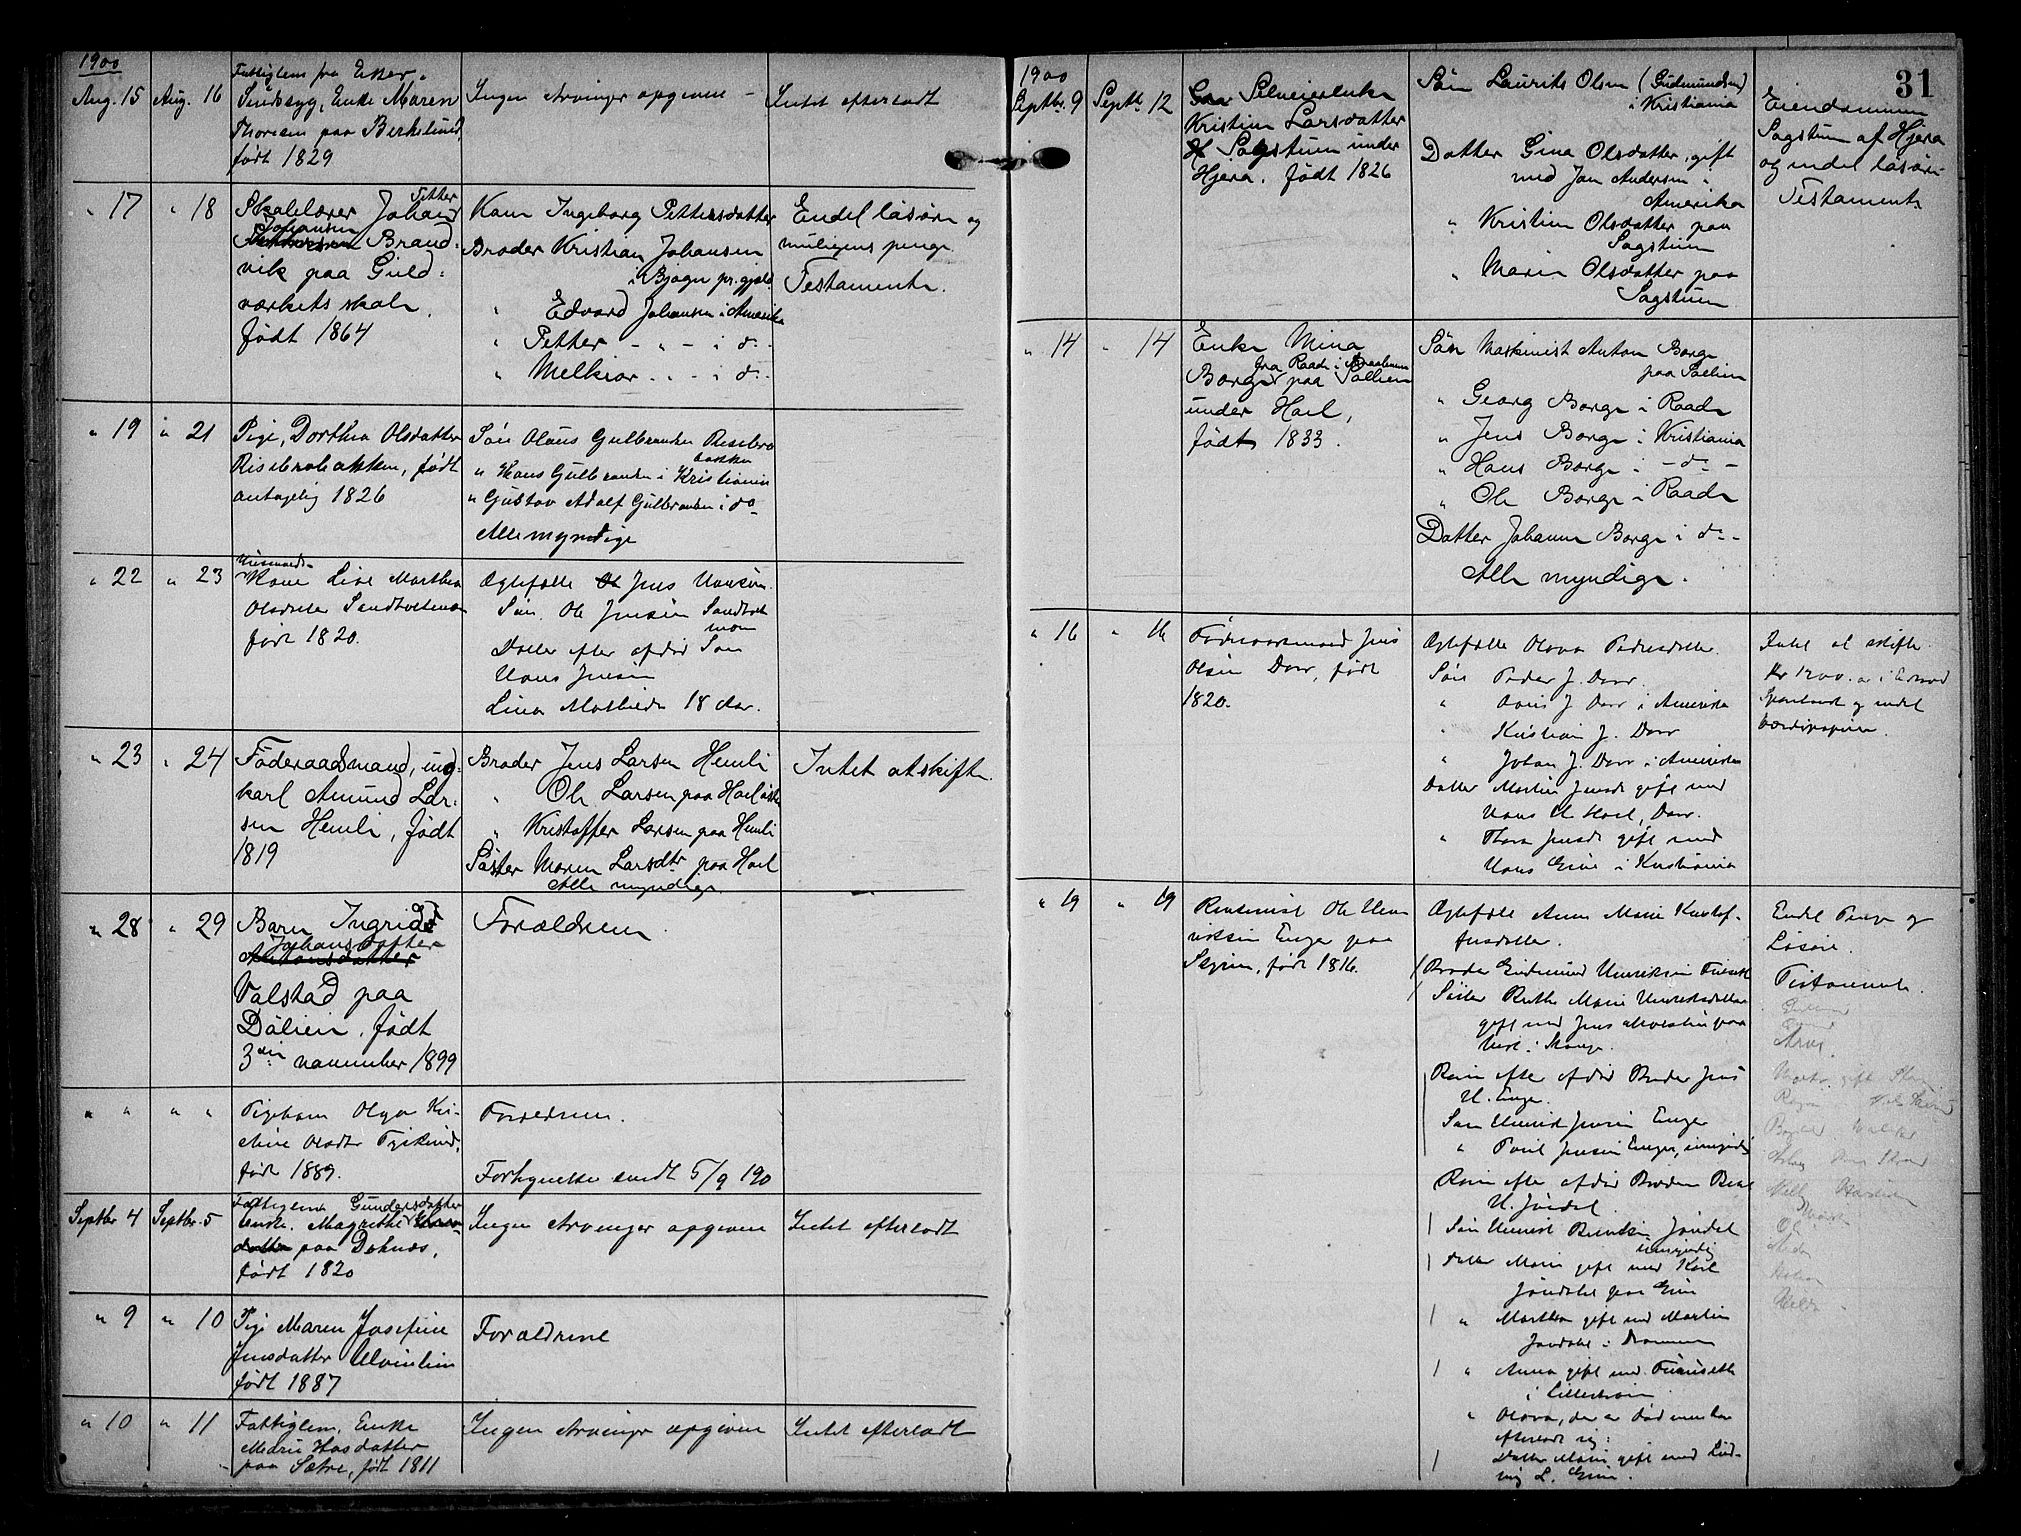 1900
Aug. 15 Aug. 16
Fattiglem fra Eker.
Sindssyg, Enke Maren
Thoresen paa Berkelund,
født 1829
Ingen Arvinger opgivne -
Intet efterladt
" 17 " 18
Petter
Skolelærer Johan
Johansen
Brand-
vik paa Guld-
værkets skole,
født 1864
Kone Ingeborg Pettersdatter
Broder Kristian Johansen
i Bjøgn pr.gjeld
" Edvard Johansen i Amerika
" Petter - " - i do.
" Melkior . . - i do.
Endel løsøre og
muligens penge.
Testamente.
" 19 " 21
Pige, Dorthea Olsdatter
Risebrobakken, født
antagelig 1826
Søn Olaus Gulbransen Risebro
bakken
" Hans Gulbransen i Kristiania
" Gustav Adolf Gulbransen i do
Alle myndige
" 22 " 23
Husmands-
Kone Lise Marthea
Olsdatter Sandholtmoen
født 1820.
Ægtefælle Jens Hansen.
Søn. Ole Jensen Sandholt
moen
Datter efter afdød Søn
Hans Jensen
Lina Mathilde 18 Aar.
" 23 " 24
Føderaadsmand, ung-
karl Amund Lar-
sen Hemli, født
1819
Broder Jens Larsen Hemli
" Ole Larsen paa Hoel østre
" Kristoffer Larsen paa Hemli
Søster Maren Larsdtr paa Hoel
Alle myndige.
Intet at skifte.
" 28 " 29
Barn Ingrid
Johansdatter
Antonsdatter
Valstad paa
Dølien, født
3die november 1899
Forældrene.
" " " "
Pigebarn Olga Kri-
stine Olsdtr
født 1889.
Forældrene.
Forkynnelse sendt 5/9 190
Septbr 4 Septbr. 5
Fattiglem Gundersdatter
Enke. Magnethe
datter paa Doknæs,
født 1820
Ingen Arvinger opgiven
Intet efterladt
" 9 " 10
Pige Maren Josefine
Jensdatter Ulvinlien
født 1887
Forældrene
" 10 " 11
Fattiglem. Enke
Marie Hansdatter
paa Sætre, født 1811
Ingen Arvinger opgiven
Intet efterladt
31
1900
Septbr. 9 Septb. 12
Selveierenke
Kristine Larsdatter
Sagstuen under
Hjera. født 1826
Søn Laurits Olsen (Gudmundsen)
i Kristiania
Datter Gina Olsdatter, gift
med Jon Andersen i
Amerika
" Kristine Olsdatter paa
Sagstuen
" Marie Olsdatter paa
Sagstuen
Eiendommen
Sagstuen af Hjera
og endel løsøre
Testamente.
" 14 " 14
Enke Mina
fra Raade i Smaalenene
Borge paa Sollien
under Hoel,
født 1833.
Søn Maskinist Anton Borge
paa Sollien
" Georg Borge i Raade
" Jens Borge i Kristiania
" Hans Borge i - do -
" Ole Borge i Raade
Datter Johanne Borge i do -
Alle myndige.
" 16 " 16
Føderaadsmand Jens
Olsen Dorr, født
1820.
Ægtefælle Olava Pedersdatter.
Søn Peder J. Dorr.
" J. Dorr i Amerika
" Kristian J. Dorr
" Johan J. Dorr i Amerika
Datter Martine Jensdr gift med
Hans H. Hoel, Dorr.
" Thora Jensdr gift med
Hans Grini i Kristiania
Intet at skifte.
Kr 1200. er i Ersvad
Sparebank og endel
værdipapirer.
" 19 " 19
Rentenist Ole Hen
riksen Enger paa
født 1816.
Ægtefælle Anne Marie Kristof-
fersdatter.
Broder Gudmund Henriksen
Søster Berthe Marie Henriksdatter
gift med Jens paa
i Stange.
Børn efter afdød Broder Jens
H. Enger.
Søn Henrik Jensen Enger
" Poul Jensen Enger, umyndig
Børn efter afdød Broder
H. Jøndal.
Søn Henrik Jøndal
umyndig
Datter Marie gift med Karl
Jøndal paa Grini
" Marthea gift med Martin
Jøndal i Drammen
" Anna gift med
i Lillestrøm.
" Olava, der er død men har
efterladt sig:
Datter Marie gift med Lud-
vig L. Grini.
Endel Penge og
Løsøre.
Testamente.